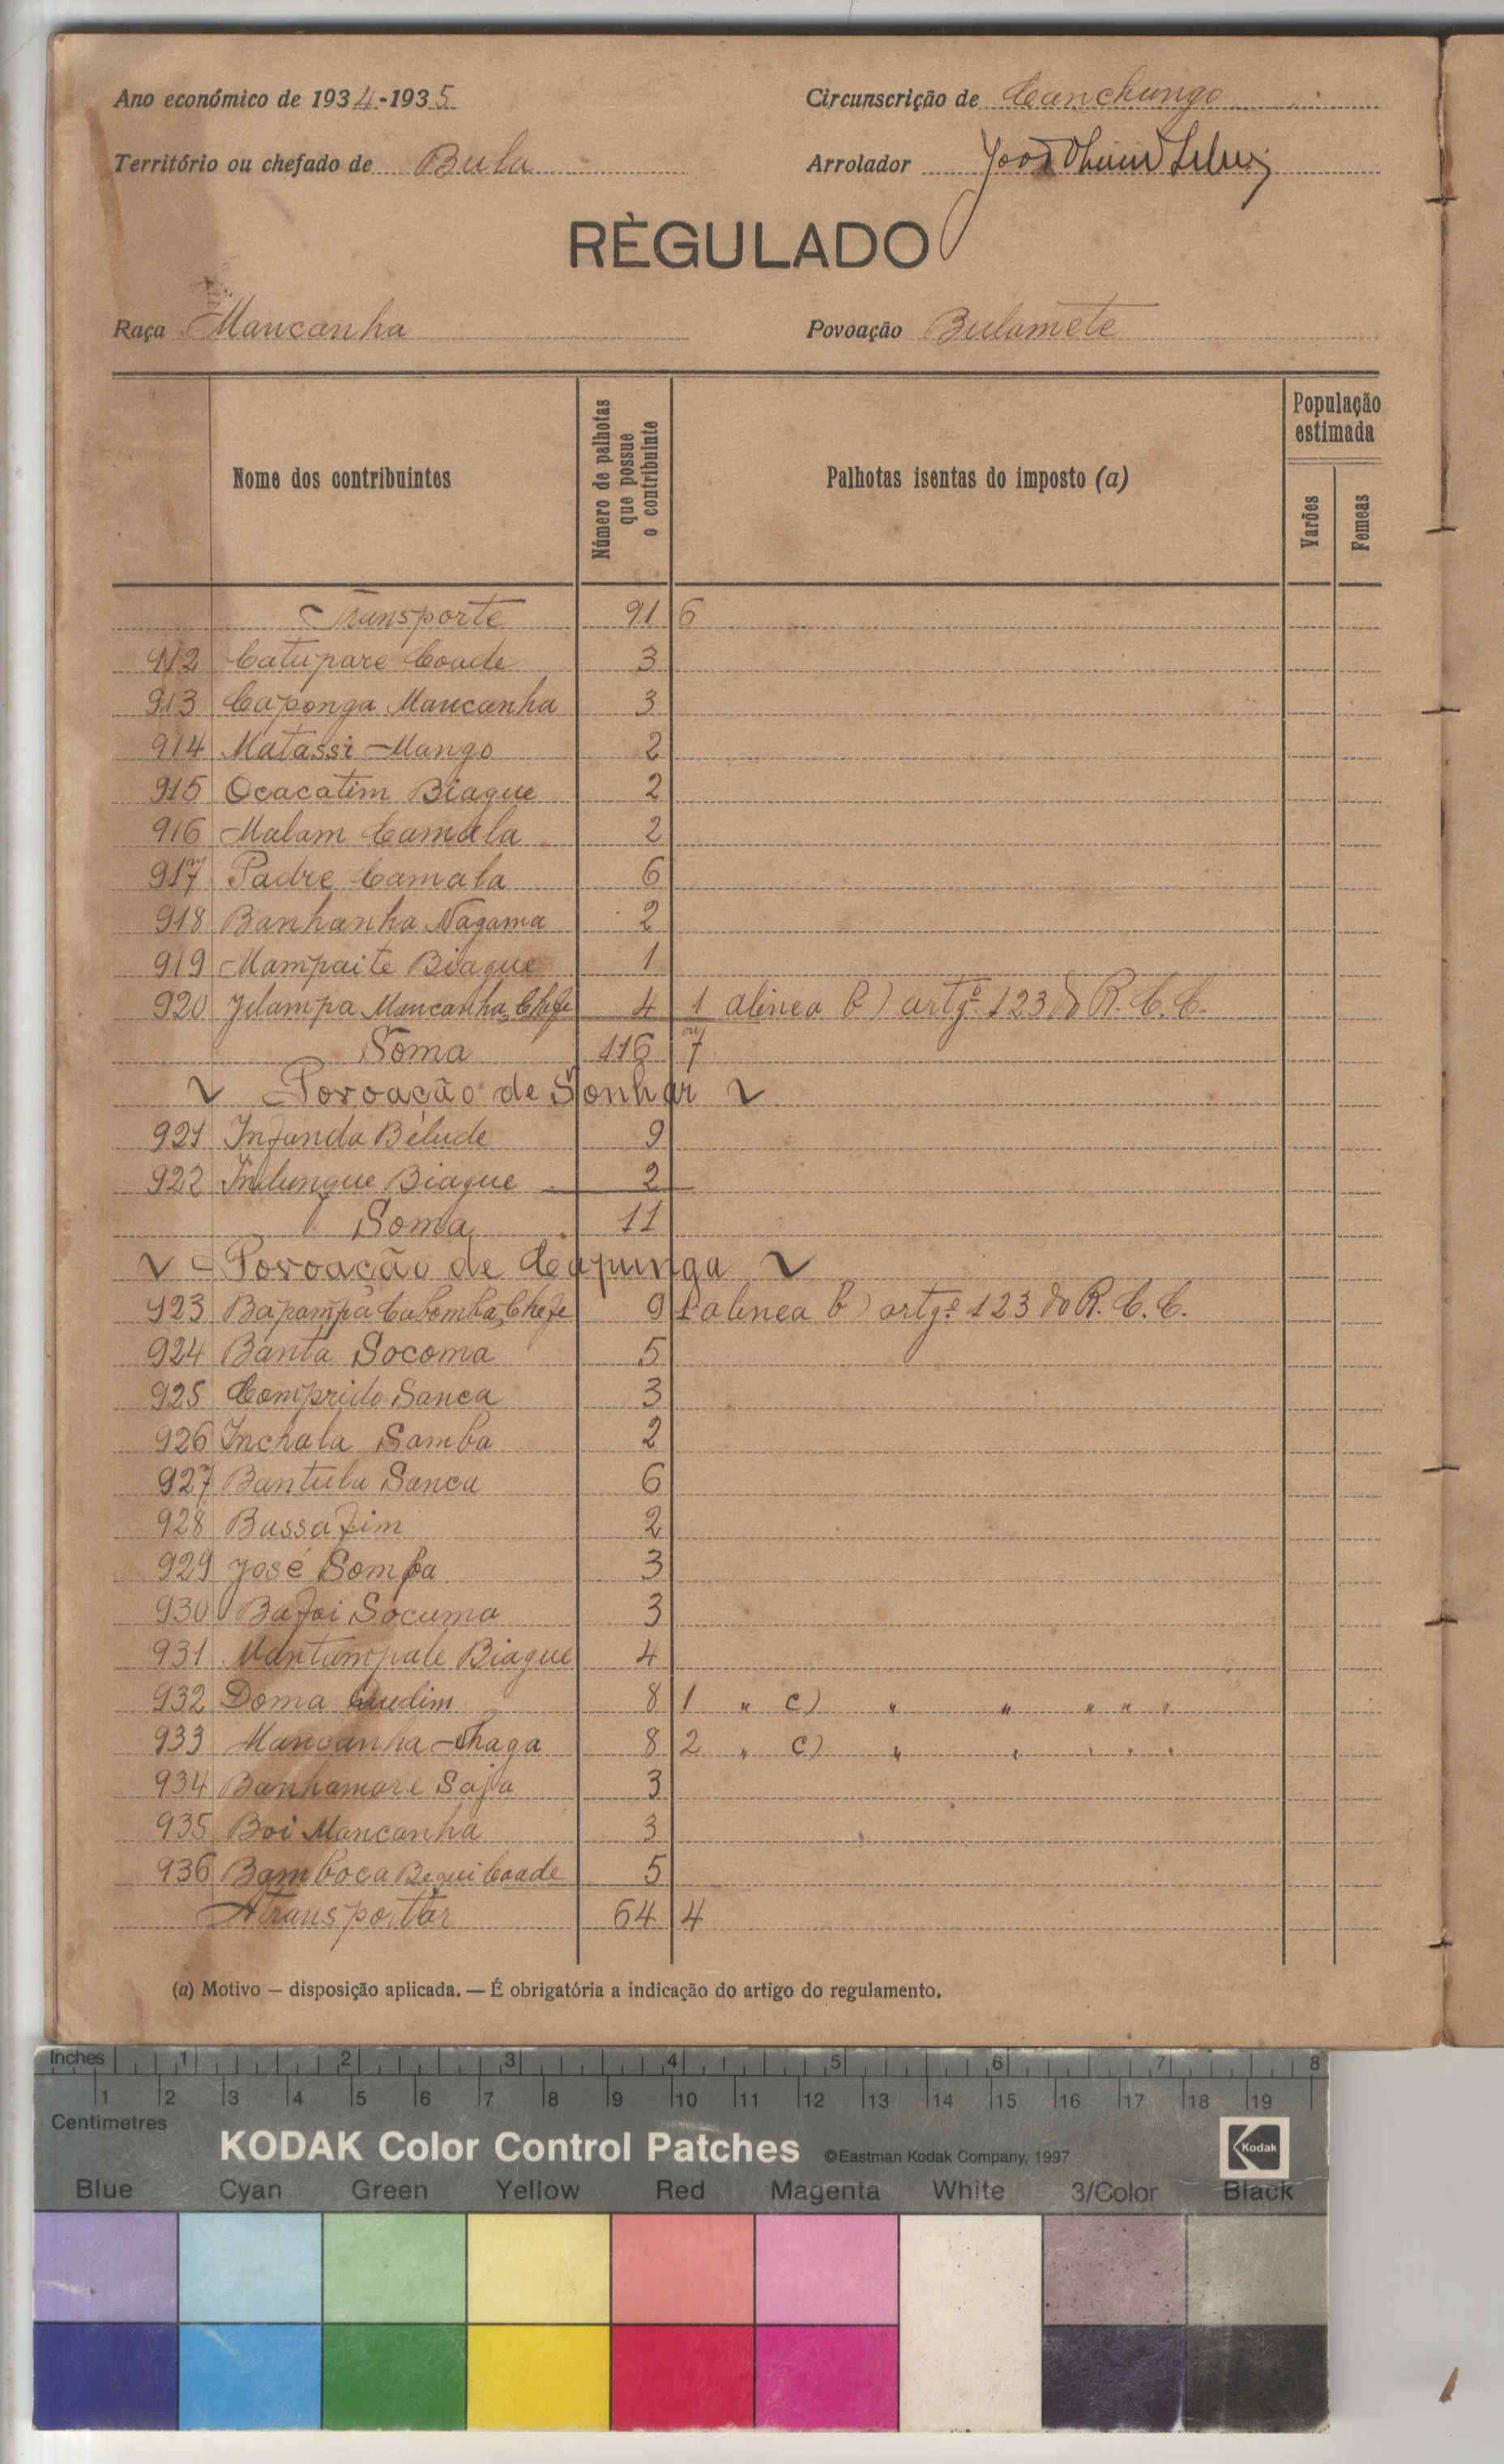 Ano económico de 1934-1935
Circunscrição de Canchungo
Território ou chefado de Bula
Arrolador
RÈGULADO
Raça Mancanha
Povoação Bulamete
Nome dos contribuintes
Número de palhotas que possue o contribuinte
Palhotas isentas do imposto (a)
População estimada
Varões
Femeas
Transporte 91 6
912 Catupare Coade 3
913 Caponga Mancanha 3
914 Matassi Mango 2
915 Ocacatim Biague 2
916 Malam Camala 2
917 Padre Camala 6
918 Banhanha Nagama 2
919 Mampaite Biague 1
920 Jelampa Mancanha, Chefe 4 1 alinea b) artgº 123 do R. C. C.
Soma 116 7
Povoação de Sonhar
921 Infanda Bélude 9
922 Indungue Biague 2
Soma 11
Povoação de Capunga
923 Bapampa Cabomba, Chefe 9 1 alinea b) artgº 123 do R. C. C.
924 Banta Socoma 5
925 Comprido Sanca 3
926 Inchala Samba 2
927 Bantulu Sanca 6
928 Bussa Fim 2
929 José Somba 3
930 Bafoi Socuma 3
931 Mantampale Biague 4
932 Doma Quedim 8 1 " c) " " " " "
933 Mancanha Thaga 8 2 " c) " " " " "
934 Banhamare Saja 3
935 Boi Mancanha 3
936 Bamboca Bequi Coade 5
A transportar 64 4
(a) Motivo — disposição aplicada. — É obrigatória a indicação do artigo do regulamento.
Inches 1 2 3 4 5 6 7 8
1 2 3 4 5 6 7 8 9 10 11 12 13 14 15 16 17 18 19
Centimetres
KODAK Color Control Patches ©Eastman Kodak Company, 1997 Kodak
Blue Cyan Green Yellow Red Magenta White 3/Color Black